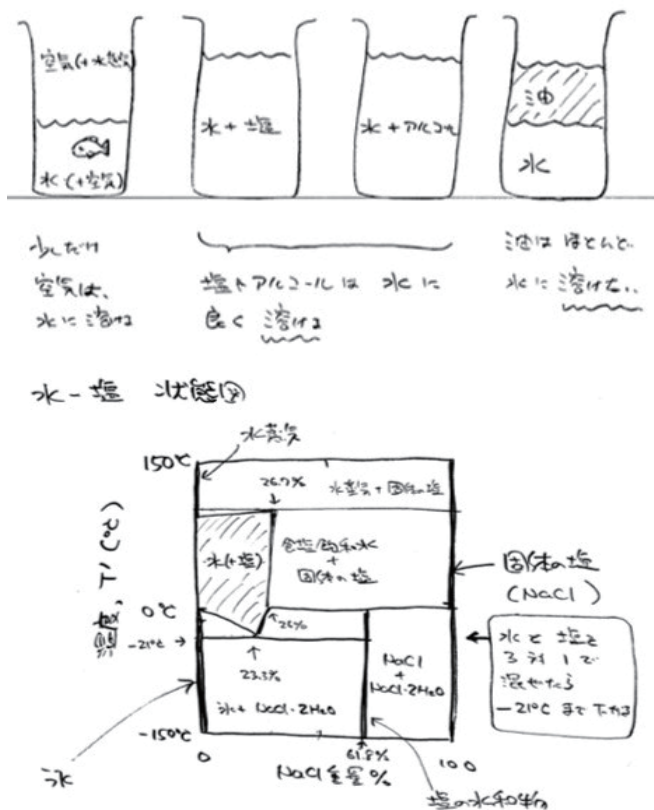 空気(+水蒸気)
水(+空気)
水 + 塩
水 + アルコール
油
水
少しだけ
空気は、
水に溶ける
塩やアルコールは 水に
良く 溶ける
油は ほとんど
水に 溶けない
水－塩 状態図
水蒸気
150℃
26.7%
水蒸気 + 固体の塩
水(+塩)
食塩飽和水
+
固体の塩
固体の塩
(NaCl)
温度, T/(℃)
0℃
26%
-21℃
23.3%
NaCl
+
NaCl·2H2O
氷 + NaCl·2H2O
水と塩を
3対1で
混ぜたら
-21℃まで下がる
-150℃
0
61.8%
100
NaCl重量%
氷
塩の水和物